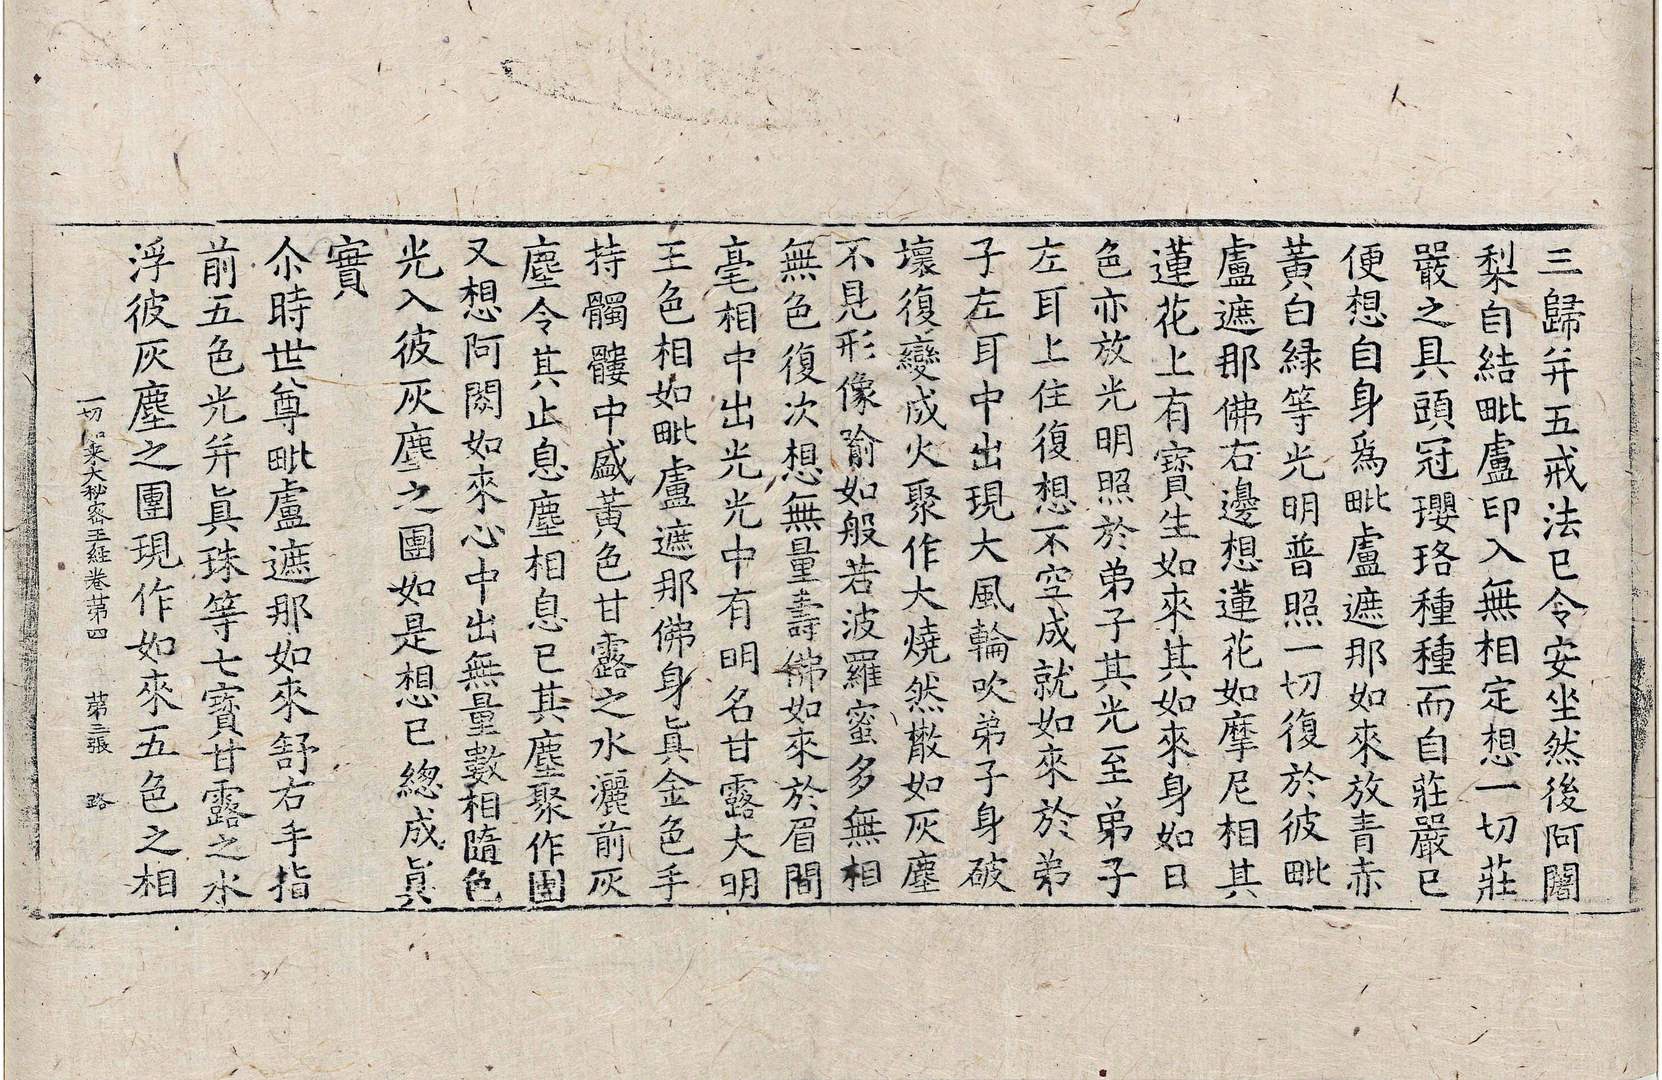 三歸并五戒法已令安坐然後阿闍
梨自結毗盧印入無相定想一切莊
嚴之具頭冠瓔珞種種而自莊嚴已
便想自身爲毗盧遮那如來放青赤
黃白綠等光明普照一切復於彼毗
盧遮那佛右邊想蓮花如摩尼相其
蓮花上有寶生如來其如來身如日
色亦放光明照於弟子其光至弟子
左耳上住復想不空成就如來於弟
子左耳中出現大風輪吹弟子身破
壞復變成火聚作大燒然散如灰塵
不見形像喻如般若波羅蜜多無相
無色復次想無量壽佛如來於眉間
毫相中出光光中有明名甘露大明
王色相如毗盧遮那佛身眞金色手
持髑髏中盛黃色甘露之水灑前灰
塵令其止息塵相息已其塵聚作團
又想阿閦如來心中出無量數相隨色
光入彼灰塵之團如是想已總成眞
實
尒時世尊毗盧遮那如來舒右手指
前五色光并眞珠等七寶甘露之水
浮彼灰塵之團現作如來五色之相
一切如來大秘密王經卷第四 第三張 路